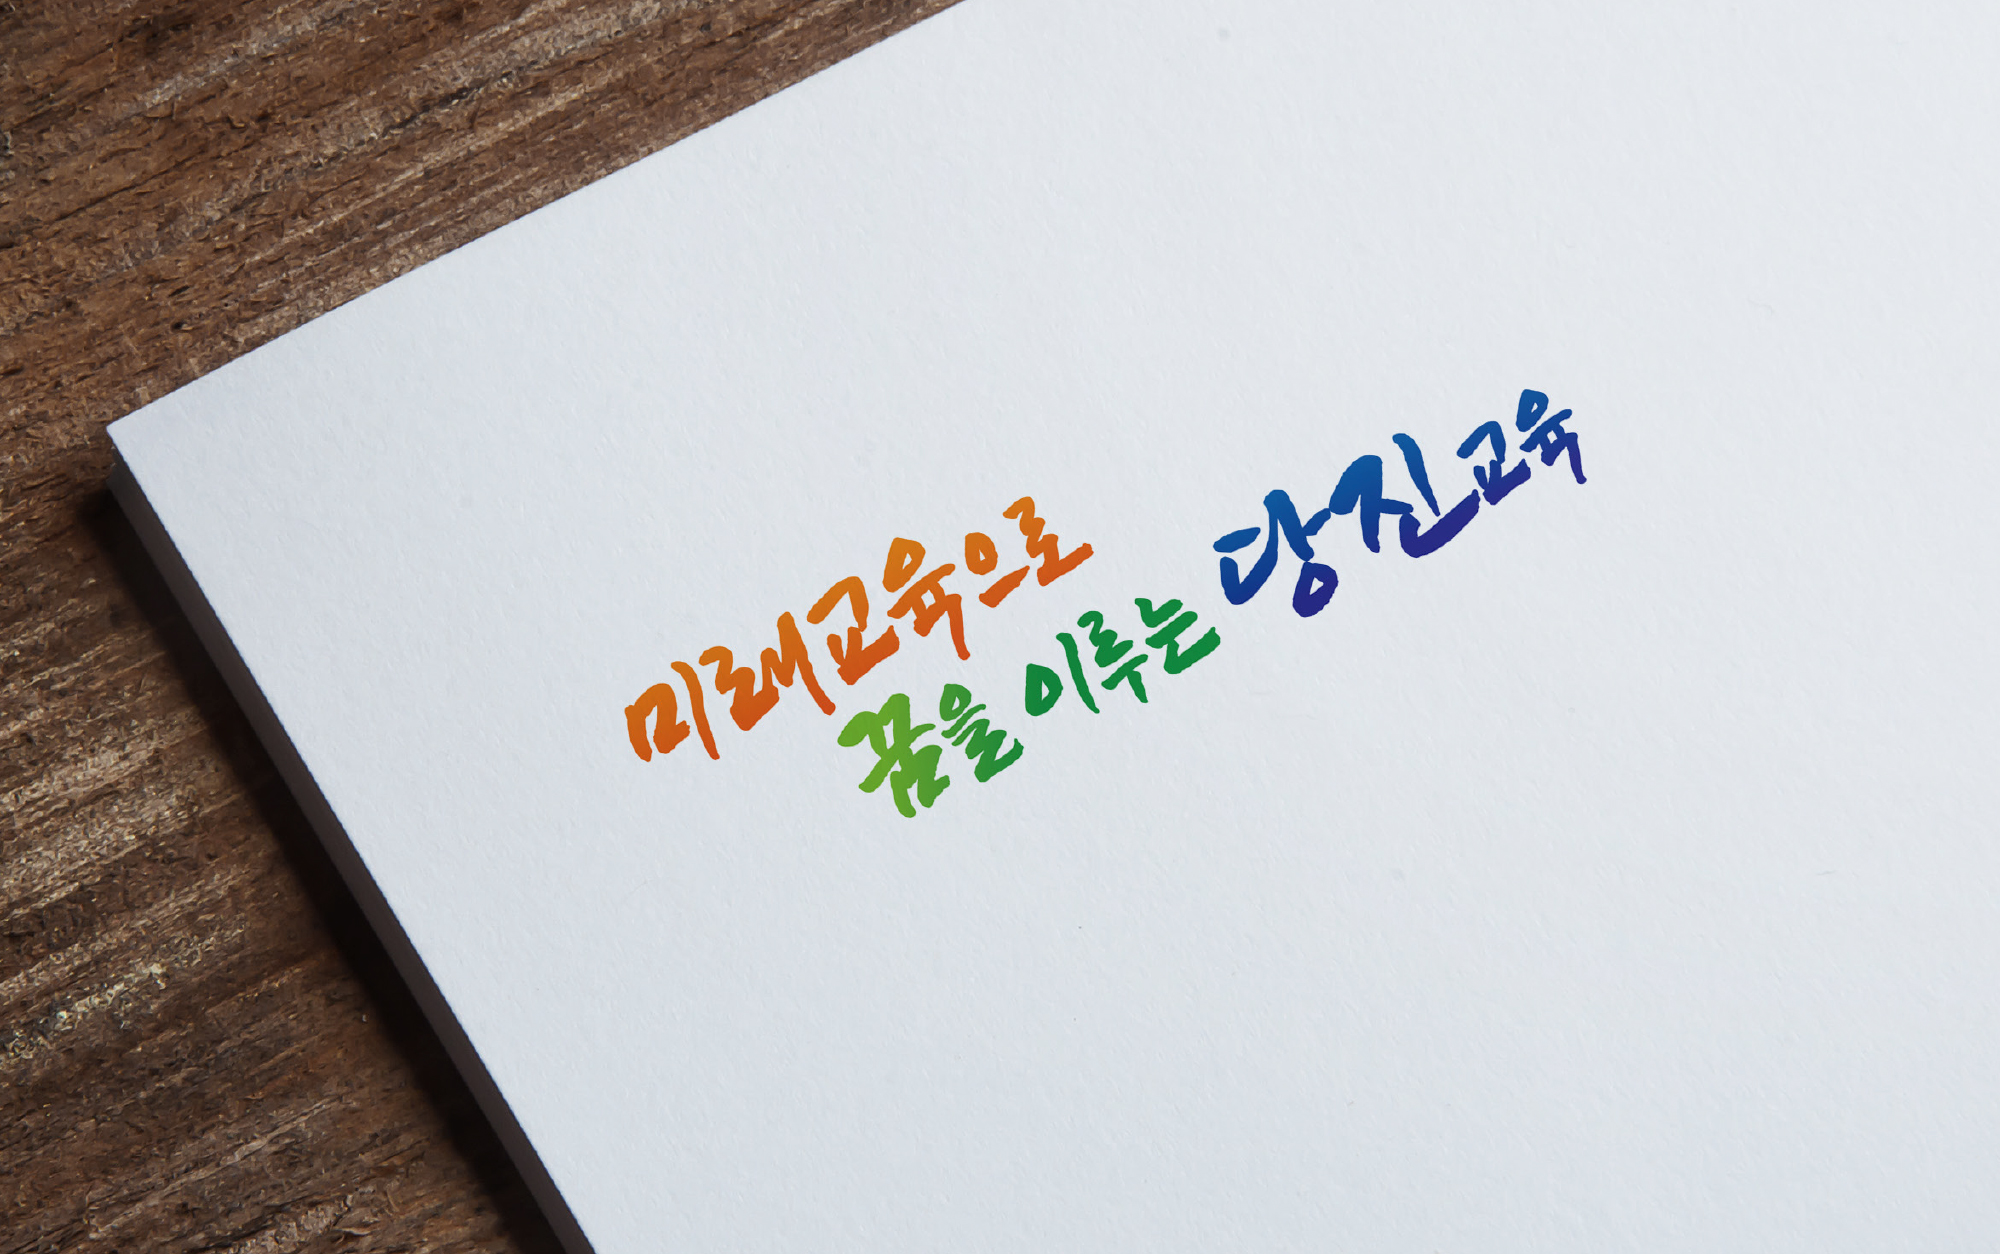 미래교육으로
꿈을 이루는
당진교육